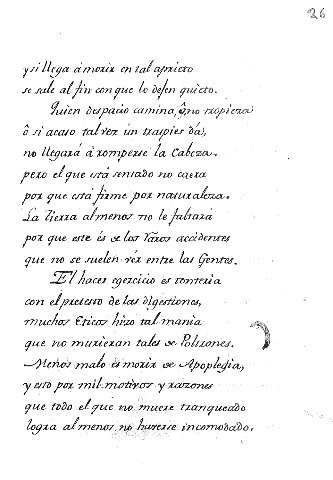 26
y si llega á morir en tal aprieto
se sale al fin con que lo dejen quieto.
Quien despacio camina, ô no tropieza
ô si acaso tal vez un traspies dá,
no llegará à romperse la Cabeza.
pero el que está sentado no caerá
por que está firme por naturaleza.
La Tierra al menos no le faltará
por que este és de los raros accidentes
que no se suelen vér entre las Gentes.
El hacer egercicio es tonteria
con el pretesto de las digestiones,
muchos Eticos hizo tal mania
que no murieran tales de Poltrones.
Menos malo és morir de Apoplegia,
y esto por mil motivos y razones
que todo el que no muere tranqueado
logra al menos no haverse incomodado.